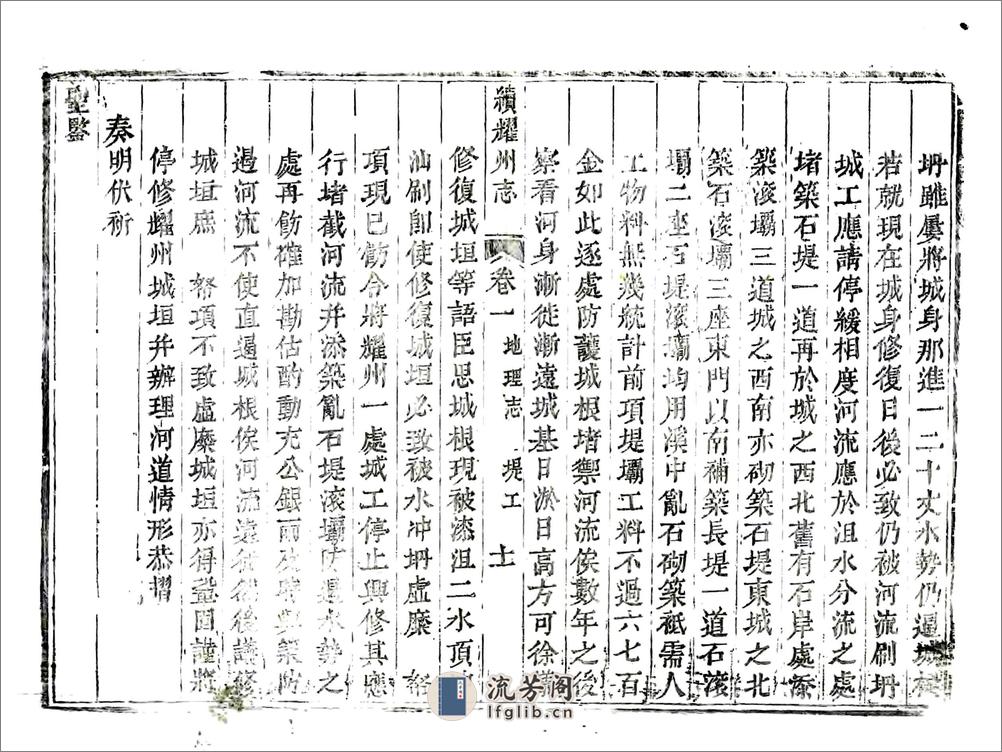 坍雖屢將城身那進一二十丈水勢仍逼城根
若就現在城身修復日後必致仍被河流刷坍
城工應請停緩相度河流應於沮水分流之處
堵築石堤一道再於城之西北舊有石岸處添
築滾壩三道城之西南亦砌築石堤東城之北
築石滾壩三座東門以南補築長堤一道石滾
壩二座石堤滾壩均用溪中亂石砌築祗需人
工物料無幾統計前項堤壩工料不過六七百
金如此逐處防護城根堵禦河流俟數年之後
察看河身漸徙漸遠城基日淤日高方可徐
續耀州志 卷一 地理志 堤工 十
修復城垣等語臣思城根現被漆沮二水頂
汕刷卽使修復城垣必致被水冲坍虛糜 帑
項現已飭令將耀州一處城工停止興修其應
行堵截河流并添築亂石堤滾壩 逼水勢之
處再飭確加勘估酌動充公銀兩及時興築防
遏河流不使直逼城根俟河流遠徙然後議修
城垣庶 帑項不致虛糜城垣亦得鞏固謹將
停修耀州城垣并辦理河道情形恭摺
奏明伏祈
聖鑒
流芳阁
lfglib.cn